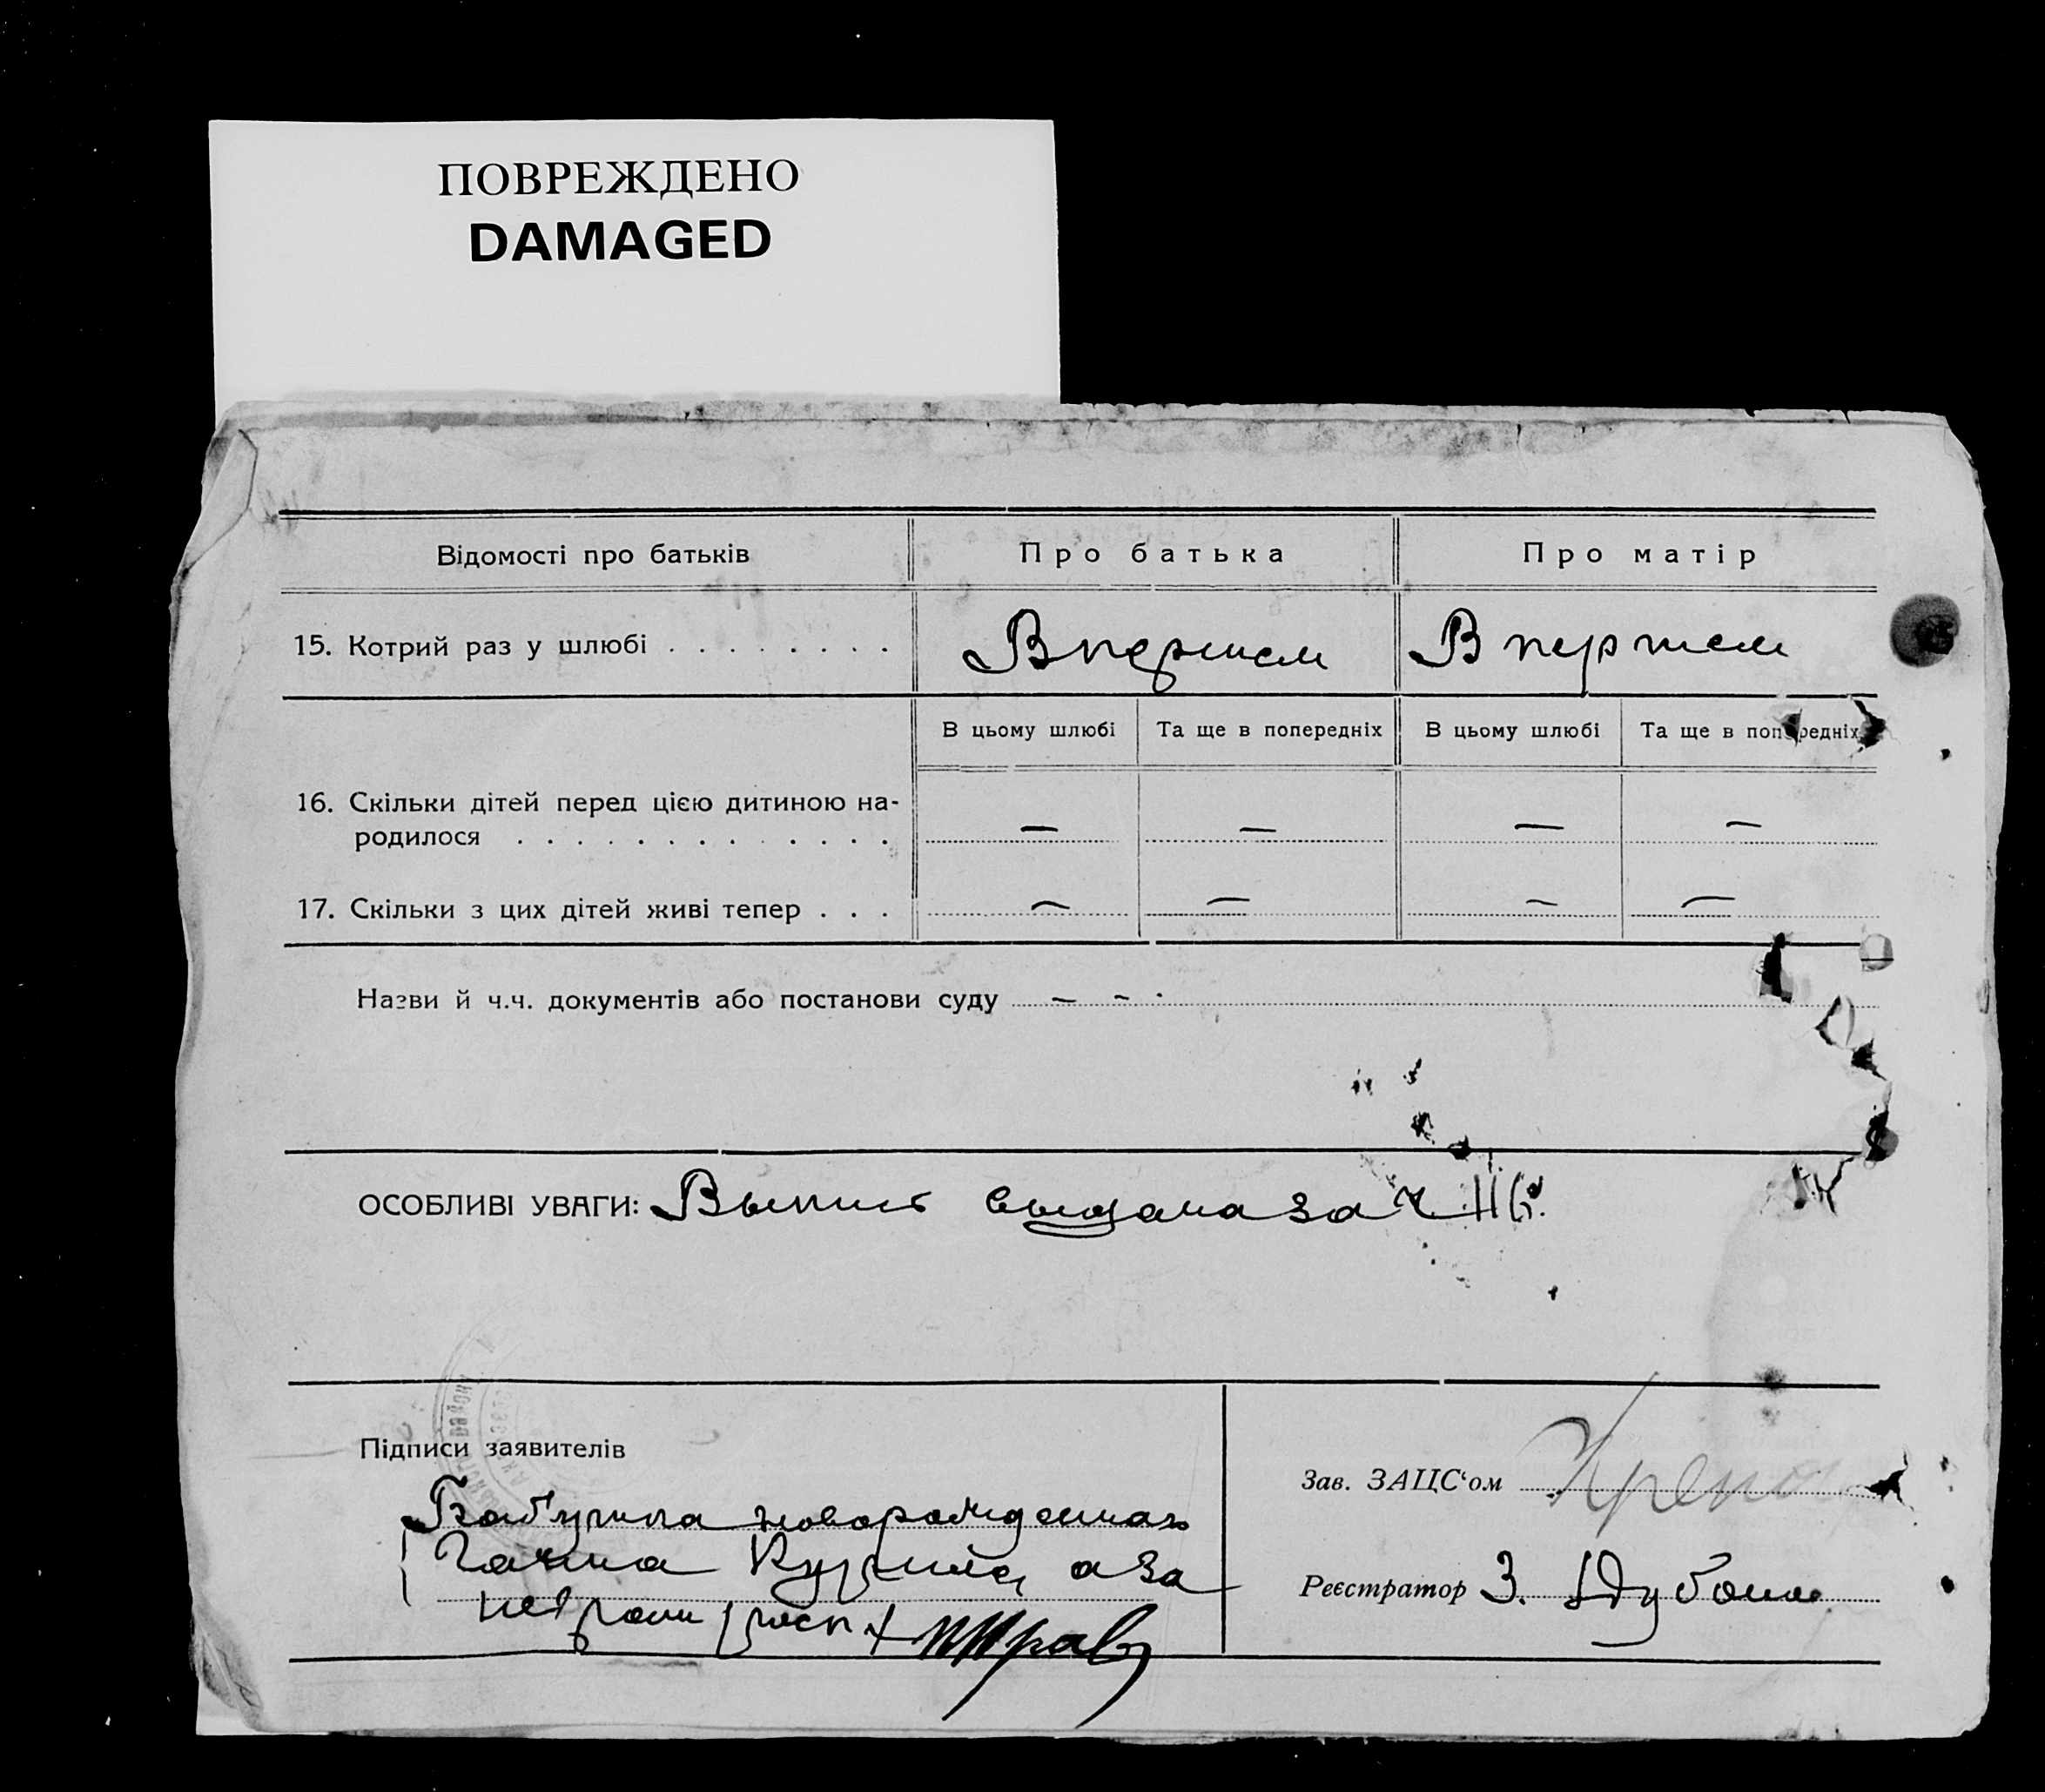 ПОВРЕЖДЕНО
DAMAGED
Відомості про батьків
Про батька
Про матір
15. Котрий раз у шлюбі . . . . . . . .
В первом
В первом
В цьому шлюбі
Та ще в попередніх
В цьому шлюбі
Та ще в попередніх
16. Скільки дітей перед цією дитиною на-
родилося . . . . . . . . . . . . .
— — — —
17. Скільки з цих дітей живі тепер . . .
— — — —
Назви й ч.ч. документів або постанови суду — - .
ОСОБЛИВІ УВАГИ: Выпись выдана за
Підписи заявителів
Бабушка новорожденных
а за
неграм
Зав. ЗАЦС‘ом
Реєстратор З.